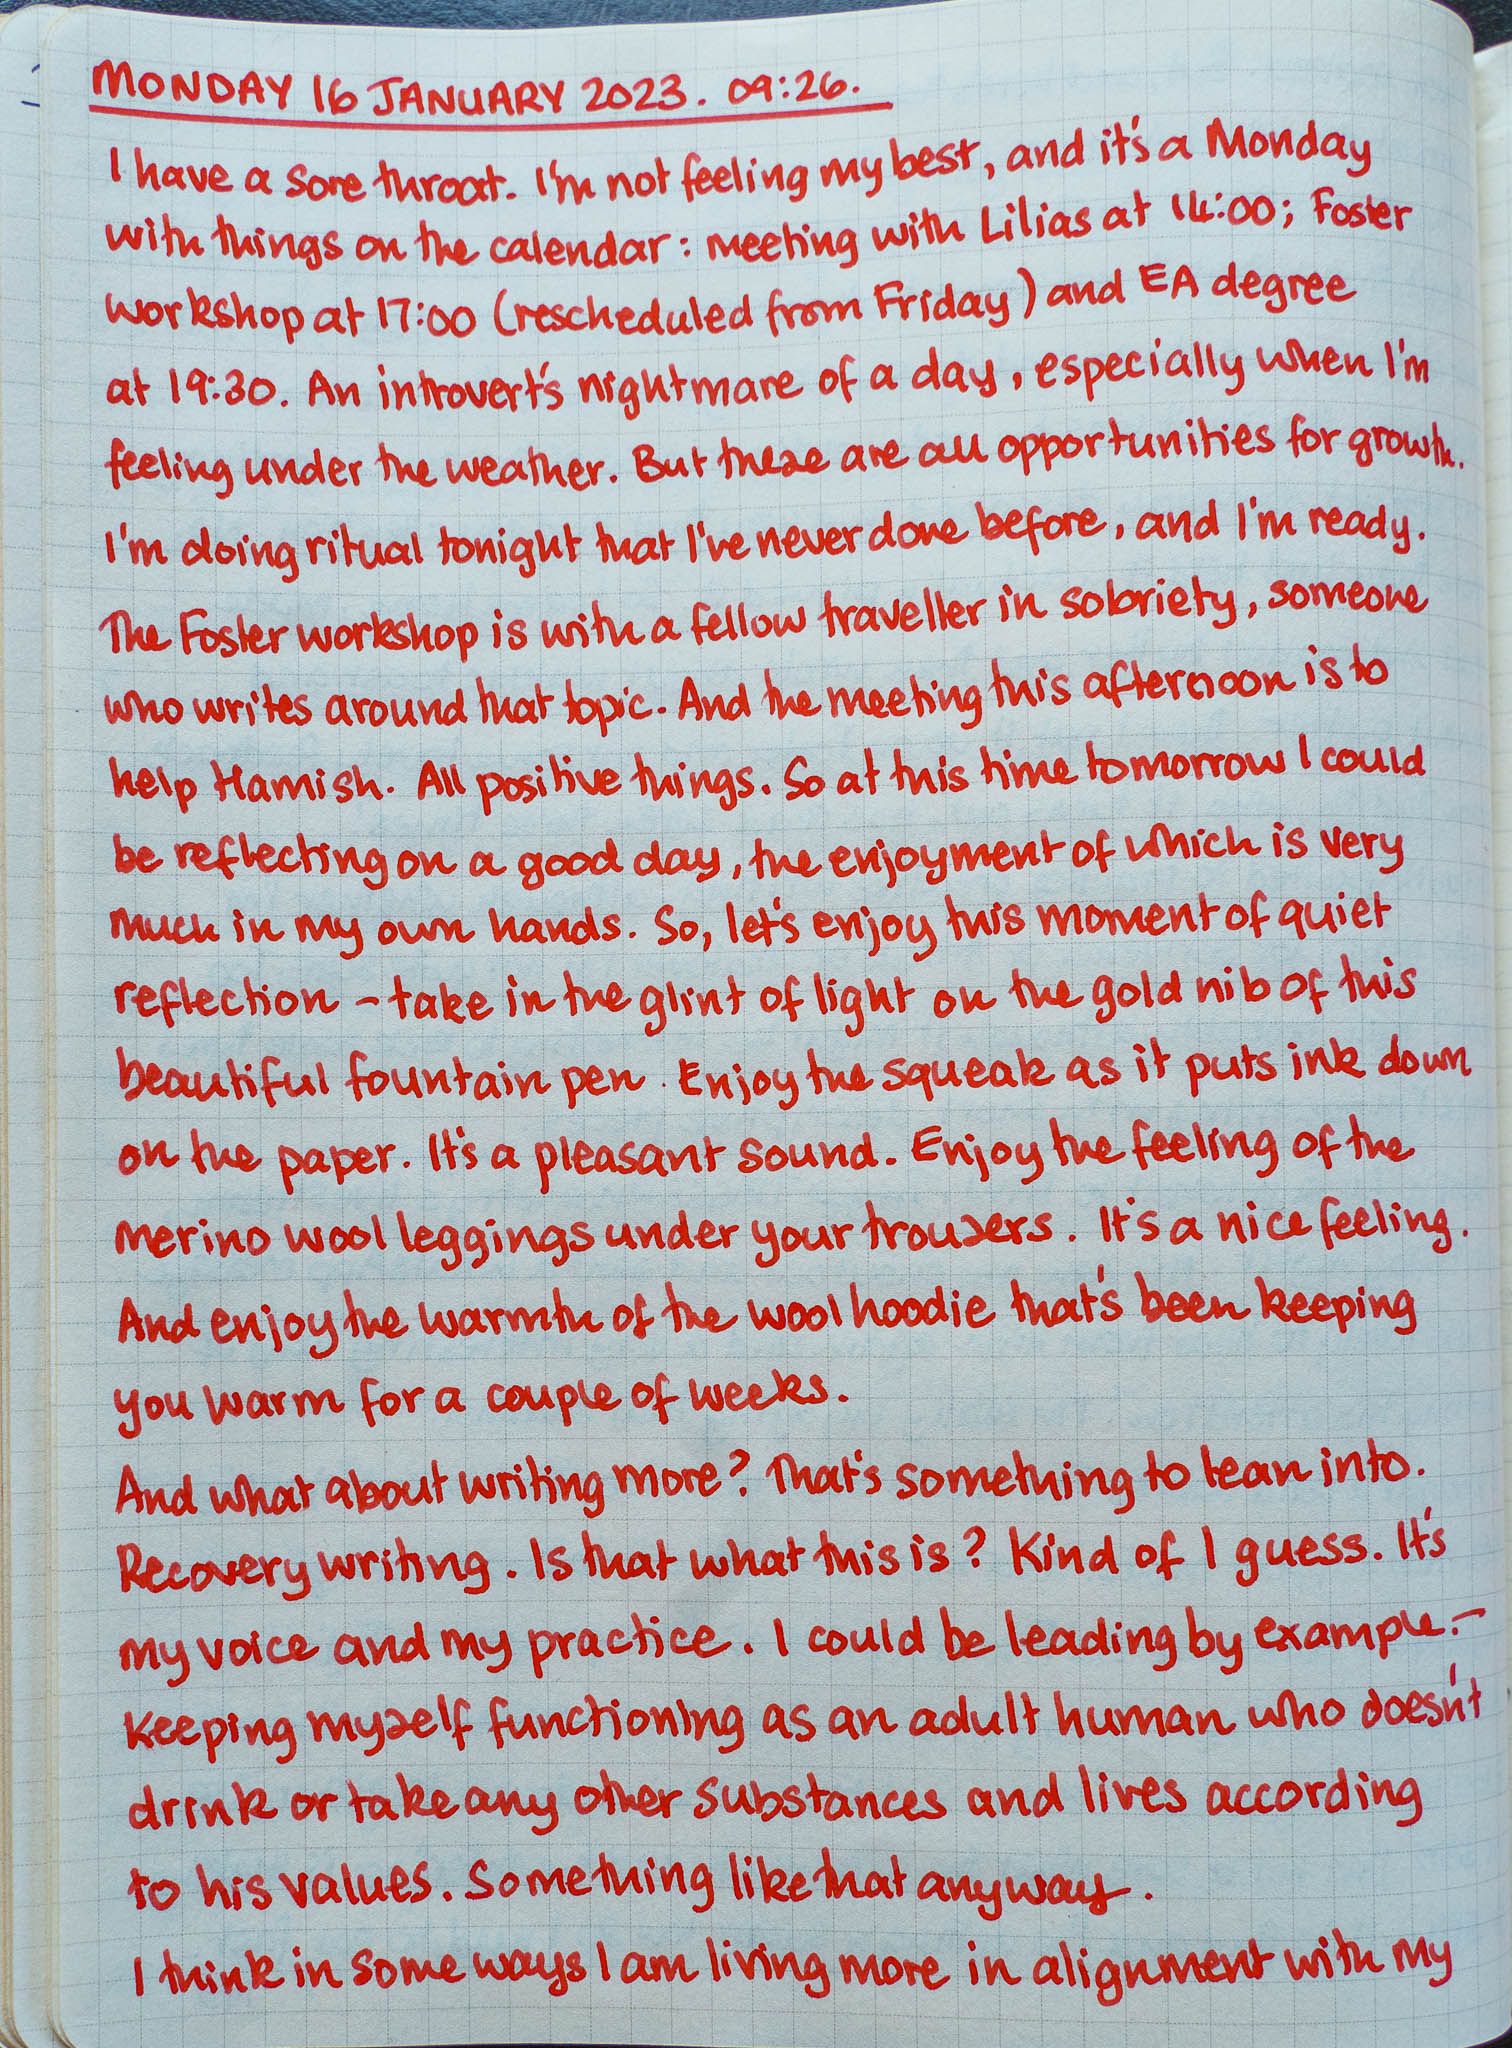 MONDAY 16 JANUARY 2023. 09:26.
I have a sore throat. I'm not feeling my best, and it's a Monday
with things on the calendar: meeting with Lilias at 14:00; Foster
workshop at 17:00 (rescheduled from Friday) and EA degree
at 19:30. An introvert's nightmare of a day, especially when I'm
feeling under the weather. But these are all opportunities for growth.
I'm doing ritual tonight that I've never done before, and I'm ready.
The Foster workshop is with a fellow traveller in sobriety, someone
who writes around that topic. And the meeting this afternoon is to
help Hamish. All positive things. So at this time tomorrow I could
be reflecting on a good day, the enjoyment of which is very
much in my own hands. So, let's enjoy this moment of quiet
reflection - take in the glint of light on the gold nib of this
beautiful fountain pen. Enjoy the squeak as it puts ink down
on the paper. It's a pleasant sound. Enjoy the feeling of the
merino wool leggings under your trousers. It's a nice feeling.
And enjoy the warmth of the wool hoodie that's been keeping
you warm for a couple of weeks.
And what about writing more? That's something to lean into.
Recovery writing. Is that what this is? Kind of I guess. It's
my voice and my practice. I could be leading by example. -
Keeping myself functioning as an adult human who doesn't
drink or take any other substances and lives according
to his values. Something like that anyway.
I think in some ways I am living more in alignment with my